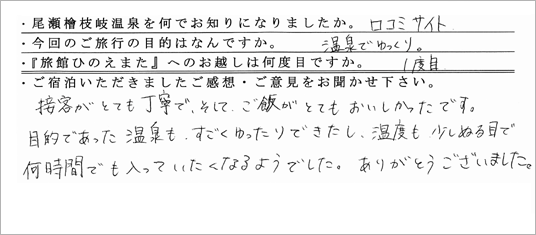 ・尾瀬檜枝岐温泉を何でお知りになりましたか。 口コミサイト
・今回のご旅行の目的はなんですか。 温泉でゆっくり。
・『旅館ひのえまた』へのお越しは何度目ですか。 1度目
・ご宿泊いただきましたご感想・ご意見をお聞かせ下さい。
接客がとても丁寧で、そして、ご飯がとてもおいしかったです。
目的であった温泉も、すごくゆったりできたし、温度も少しぬる目で
何時間でも入っていたくなるようでした。ありがとうございました。